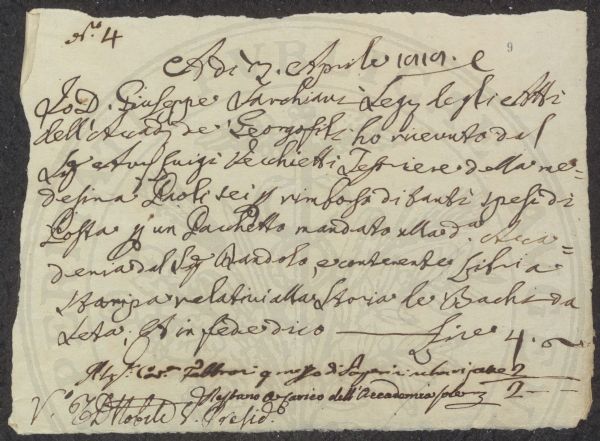 N.o 4
9
A dì 7. Aprile 1819.
Io D. Giuseppe Sarchiani Seg.rio degli Atti
dell'Accad.a de' Georgofili ho ricevuto dal
Sig.e Luigi Vecchietti Tesoriere della me=
desima Paoli sei p rimborso di tanti spesi di
Posta p un Pacchetto mandato alla d.a Acca=
demia dal Sig.e Dandolo, e contenente Libri a
stampa relativi alla Storia de' Bachi da
Seta; Et in fede dico — Lire 4.
2
Restano a carico dell'Accademia sole 2
V.o Presid.